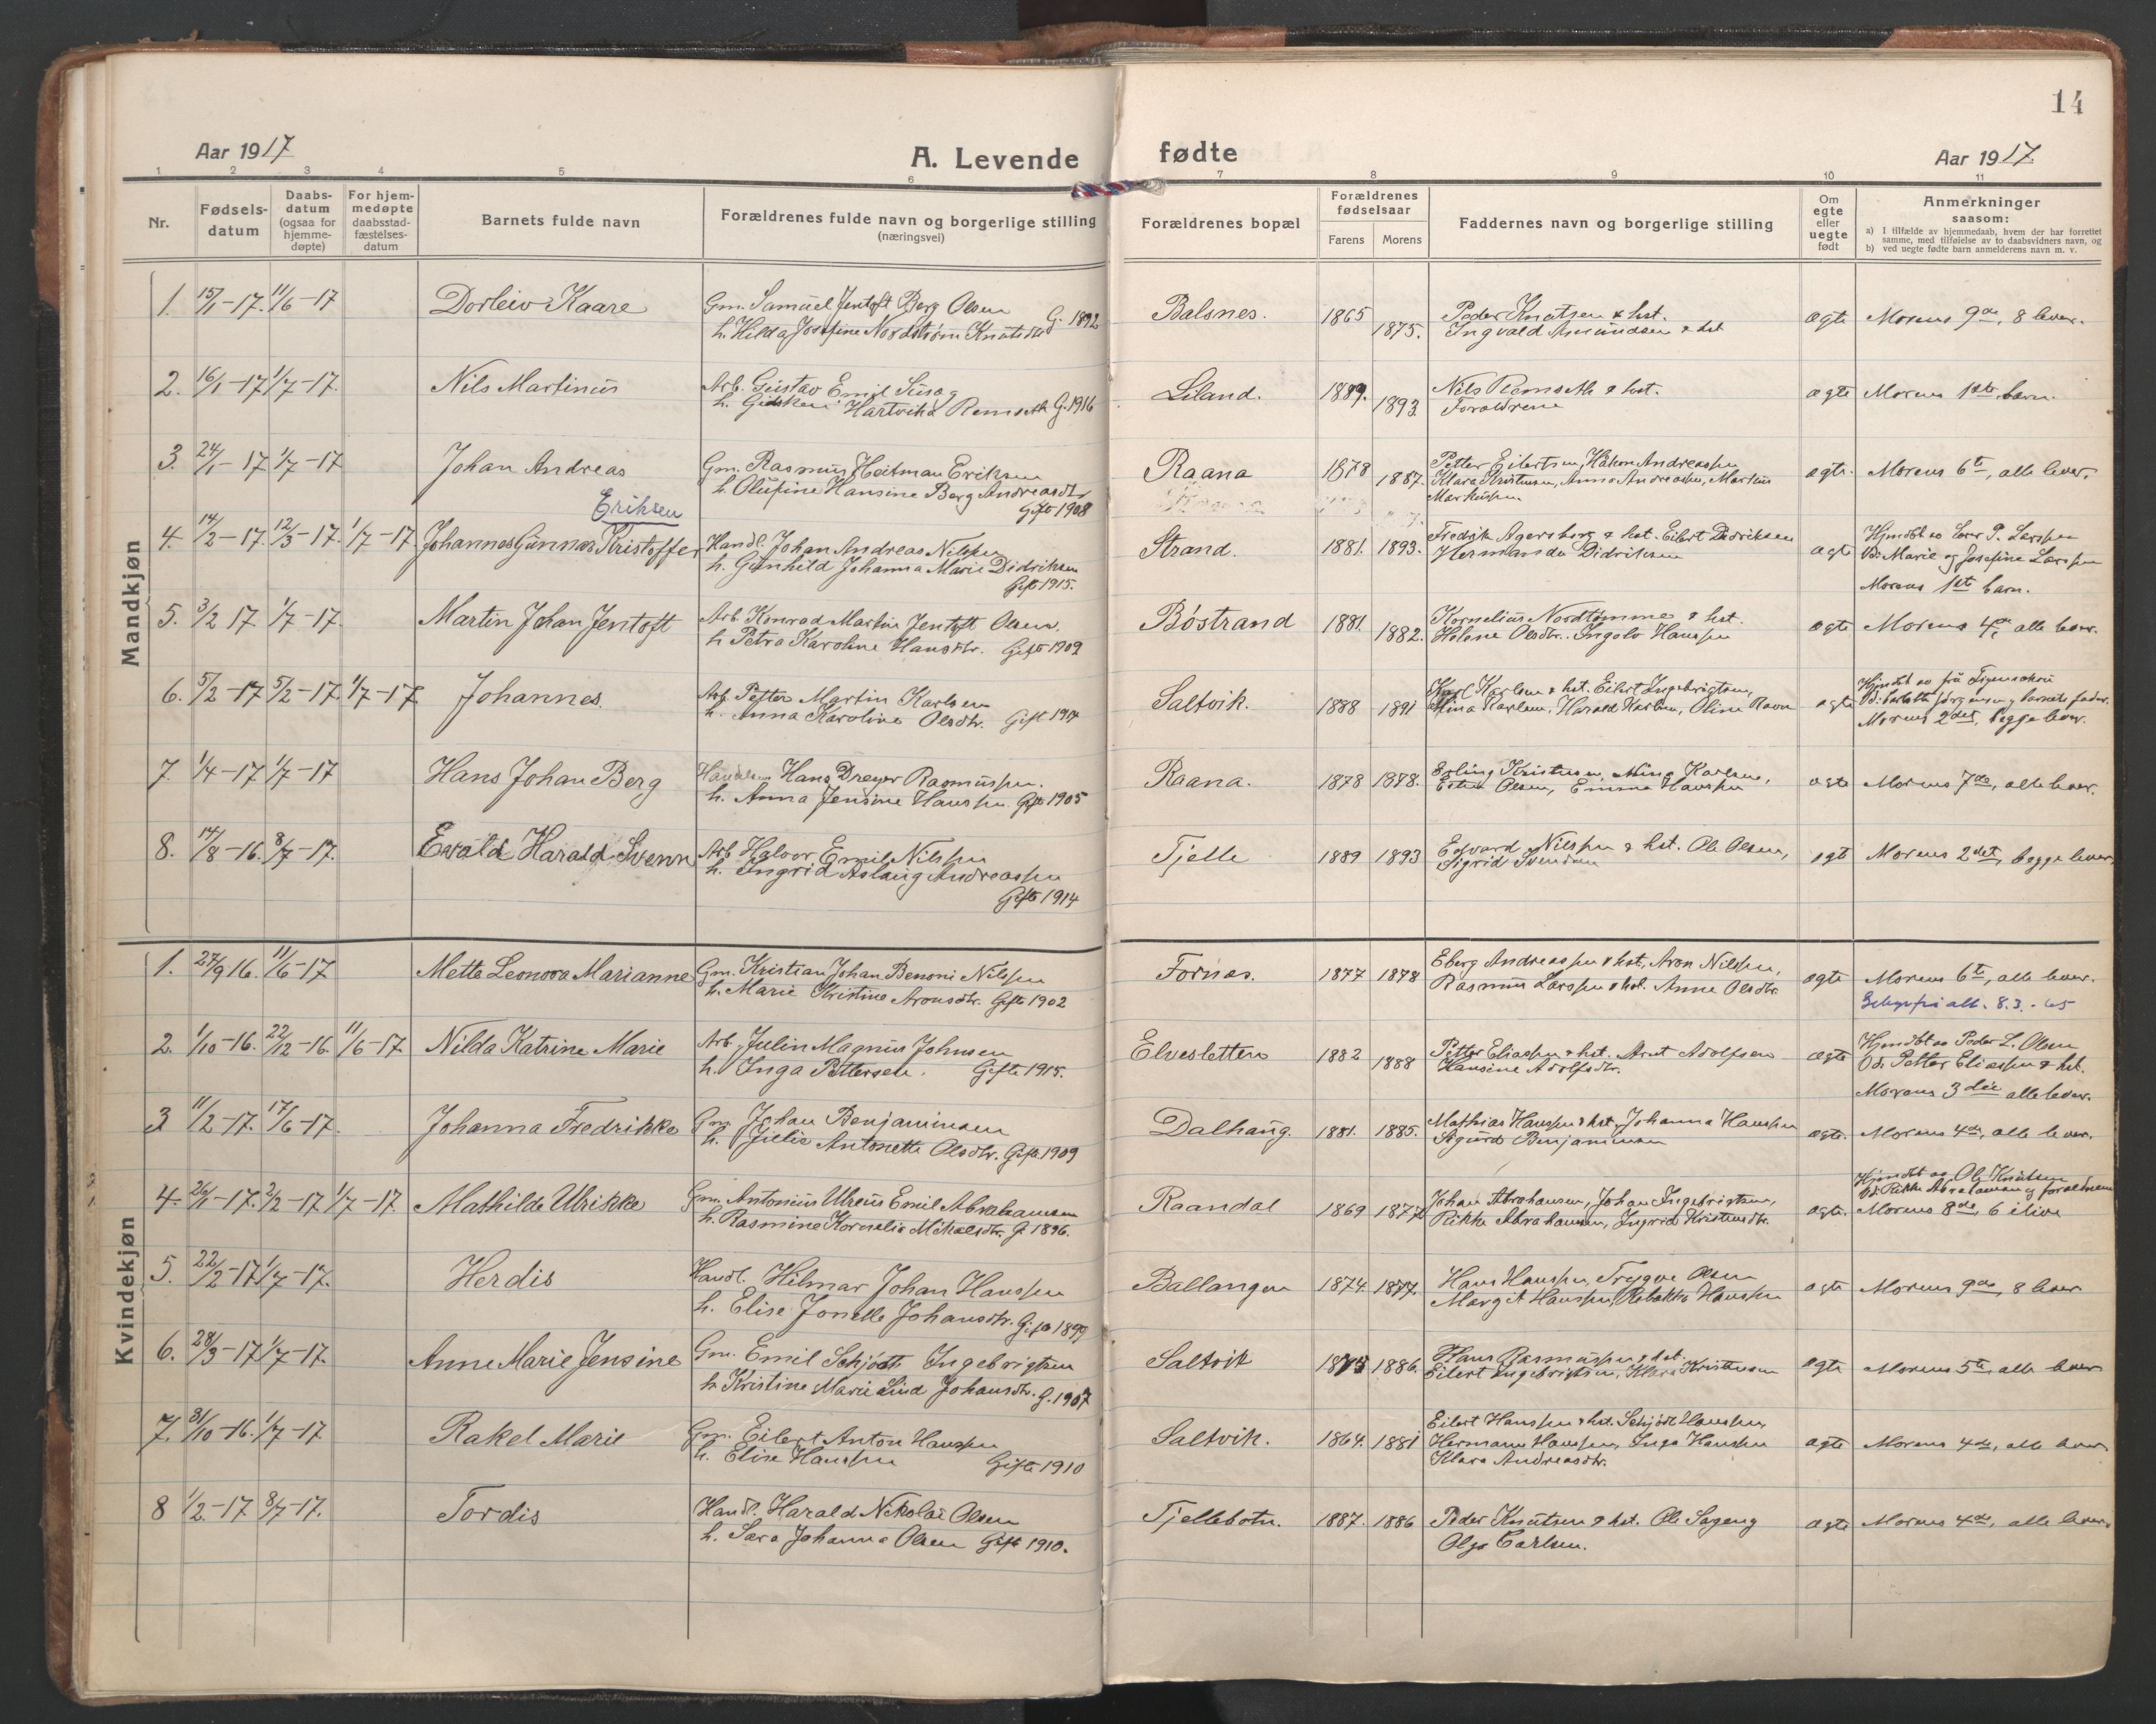 14
Aar 1917
A. Levende
fødte
Aar 1917.
1 2 3 4 5 6 7 8 9 10 11
Nr.
Fødsels-
datum
Daabs-
datum
(ogsaa for
hjemme-
døpte)
For hjem-
medøpte
daabsstad-
fæstelses-
datum
Barnets fulde navn
Forældrenes fulde navn og borgerlige stilling
(næringsvei)
Forældrenes bopæl
Forældrenes
fødselsaar
Farens Morens
Faddernes navn og borgerlige stilling
Om
egte
eller
uegte
født
Anmerkninger
saasom:
a) I tilfælde av hjemmedaab, hvem der har forrettet
samme, med tilføielse av to daabsvidners navn, og
b) ved uegte fødte barn anmelderens navn m. v.
Mandkjøn
1. 15/1-17. 11/6-17 Dorleiv Kaare Gm. Samuel Jentoft Berg Olsen Balsnes. 1865 Peder Knutsen & hst. ægte Morens 9de, 8 lever.
h. Hilda Josefine Nordstrøm Knutsdtr G. 1892 1875. Ingvald Amundsen & hst
2. 16/1-17 1/7-17. Nils Martinus Arb. Gustav Emil Liland. 1889. Nils Remseth & hst. ægte Morens 1ste barn.
h. Hartvikka Remseth G. 1916 1893. Forældrene
3. 24/1-17 1/7-17 Johan Andreas Gm. Rasmus Heitman Eriksen Raana 1878 1887. Petter Eilertsen, Håkon Andreassen ægte. Morens 6te, alle lever.
Eriksen
h. Olufine Hansine Berg Andreasdtr Klara Kristensen, Anna Andreassen, Markus
Gift 1908 Markussen
4. 14/2-17. 12/3-17. 1/7-17 Johannes Gunnar Kristoffer Handl. Johan Andreas Nilsen Strand. 1881. 1893. Fredrik Agersborg & hst. Eilert Didriksen ægte Hjmdbt av Lars P. Larssen
h. Gunhild Johanna Marie Didriksen Hermanda Didriksen Vd: Marie og Josefine Larssen
Gift 1915. Morens 1ste barn.
5. 3/2 17 1/7-17. Martin Johan Jentoft Arb. Konrad Martin Jentoft Olsen. Bøstrand 1881. 1882. Kornelius Nordtømme & hst. ægte Morens 4de alle lever.
h Petra Karoline Hansdtr. Gift 1909 Helene Olsdtr. Ingolv Hanssen
6. 5/2-17 5/2-17. 1/7-17 Johannes. Arb. Petter Martin Karlsen Saltvik. 1888 1891 Karl Karlsen & hst. Eilert Ingebrigtsen, ægte Hjmdbt av frå
h. Anna Karoline Olsdtr. Gift 1914 Mina Karlsen, Harald Karlsen, Oline Ravn Jørgensen og barnets fader.
Morens 2det, begge lever.
7. 1/4-17 1/7-17 Hans Johan Berg Hans Dreyer Rasmussen. Raana. 1878 1878. Erling Kristensen, Mina Karlsen, ægte Morens 7de, alle lever.
h. Anna Jensine Hanssen Gift 1905 Ester Olsen, Emma Hanssen
8. 14/8-16. 8/7-17. Evald Harald Svenn Arb Halvor Emil Nilssen Tjelle 1889 1893 Edvard Nilssen & hst. Ole Olsen, ægte Morens 2det, begge lever.
h. Ingrid Aslaug Andreassen Sigrid Svendsen
Gift 1914
Kvindekjøn
1. 27/9 16. 11/6-17 Mette Leonora Marianne Gm. Kristian Johan Benoni Nilssen Fornes. 1877 1878 Eberg Andreassen & hst, Aron Nilssen, ægte Morens 6te, alle lever.
h. Marie Kristine Aronsdtr. Gift 1902 Rasmus Larssen & hst. Anne Olsdtr. 8.3.-65
2. 1/10-16. 22/12-16. 11/6-17 Nilda Katrine Marie Arb. Julin Magnus Johnsen Elvesletten 1882 1888 Petter Eliassen & hst. Arnt Adolfsen ægte Hjmdbt av Peder L. Olsen
h. Inga Pettersen. Gift 1915. Hansine Adolfsdtr. Vd: Petter Eliassen & hst.
Morens 3die alle lever.
3 11/2-17. 17/6-17. Johanna Fredrikke Gm Johan Benjaminsen Dalhaug. 1881. 1885. Mathias Hanssen & hst, Johanna Hanssen ægte. Morens 4de, alle lever.
h. Julie Antonette Olsdtr. Gift 1909 Sigurd Benjaminsen
4. 26/1-17. 2/2-17 1/7-17. Mathilde Ulrikke Gm. Antonius Ulreus Emil Abrahamsen Raandal 1869 1874 Johan Abrahamsen, Johan Ingebrigtsen, ægte. Hjmdbt av Ole Knutsen
h. Rasmine Kornelia Mikalsdtr. G. 1896. Rikke Abrahamsen, Ingrid Kristensdtr. Vd: Rikke Abrahamsen og forældrene
Morens 8de, 6 ilive
5. 22/2-17 1/7-17. Herdis Handl. Hilmar Johan Hanssen Ballangen 1874. 1877. Hans Hanssen, Trygve Olsen ægte Morens 9de, 8 lever
h. Elise Jonelle Johansdtr. Gift 1899 Margit Hanssen, Rebekka Hanssen
6. 28/3-17 1/7-17. Anne Marie Jensine Gm. Emil Schjøtt Ingebrigtsen Saltvik 1875 1886. Hans Rasmussen & hst. ægte Morens 5te, alle lever
h. Kristine Marie Lind Johansdtr. G. 1907 Eilert Ingebrigtsen, Klara Kristensen
7. 31/10-16. 1/7-17 Rakel Marie Gm. Eilert Anton Hanssen Saltvik. 1864. 1881 Eilert Hanssen & hst. Schjødt Hanssen, ægte Morens 4de, alle lever.
h. Elise Hanssen Gift 1910 Hermann Hanssen, Inga Hanssen
Klara Andreasdtr.
8 1/2-17 8/7-17. Tordis Handl. Harald Nikolai Olsen Tjellebotn. 1887. 1886 Peder Knutsen & hst. Ole Sageng ægte Morens 4de, alle lever.
h. Sara Johanna Olsen Gift 1910. Olga Carlsen.